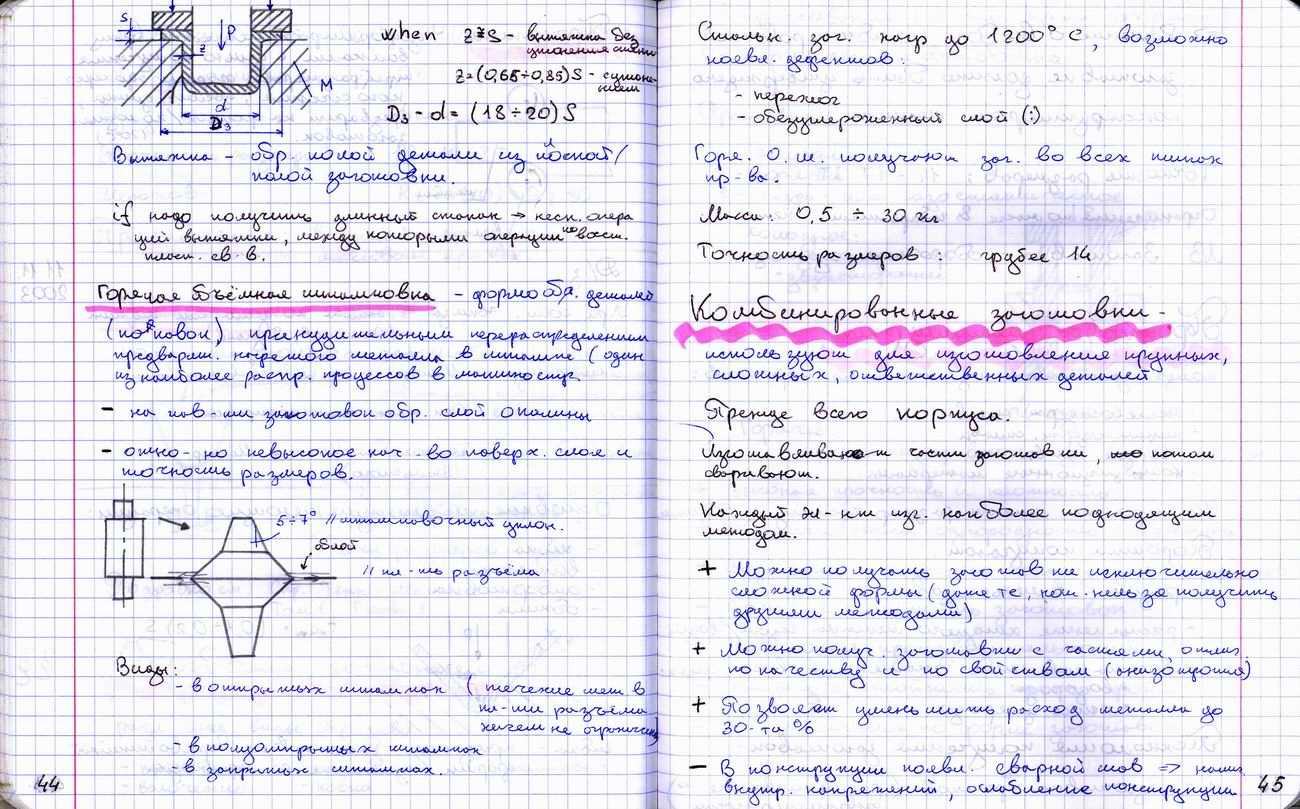 S
P
z
M
d
D₃
when z≈S - вытяжка без
утонения стенки
z=(0,65÷0,85)S - с утоне-
нием
D₃ - d = (18÷20)S
Вытяжка - обр. полой детали из плоской/
полой заготовки.
if надо получить длинный стакан → неск. опера
ций вытяжки, между которыми операции по восст.
пласт. св-в.
Горячая объёмная штамповка - формообр. деталей
(поковок) принудительным перераспределением
предварит. нагретого металла в штампе (один
из наиболее распр. процессов в машиностр.
- на пов-ти заготовок обр. слой окалины
- отно-но невысокое кач-во поверх. слоя и
точность размеров.
5÷7° // штамповочный уклон.
облой
// пл-ть разъёма
Виды:
- в открытых штампах (течение мет. в
пл-ти разъёма
ничем не ограничено)
- в полуоткрытых штампах
- в закрытых штампах.
44
Стальн. заг. нагр до 1200° С, возможно
появл. дефектов:
- пережог
- обезуглероженный слой (:)
Горяч. О. ш. получают заг. во всех типах
пр-ва.
Масса: 0,5 ÷ 30 кг
Точность размеров: грубее 14
Комбинированные заготовки -
используют для изготовления крупных,
сложных, ответственных деталей
Прежде всего корпуса.
Изготавливают части заготовки, потом
сваривают.
Каждый эл-нт изг. наиболее подходящим
методом.
+ Можно получать заготовки исключительно
сложной формы (даже те, кот. нельзя получить
другими методами)
+ Можно получ. заготовки с частями, отлич.
по качеству и по свойствам (анизотропия)
+ Позволяет уменьшить расход металла до
30-та %
- В конструкции появл. сварной шов => налич.
внутр. напряжений, ослабление конструкции
45